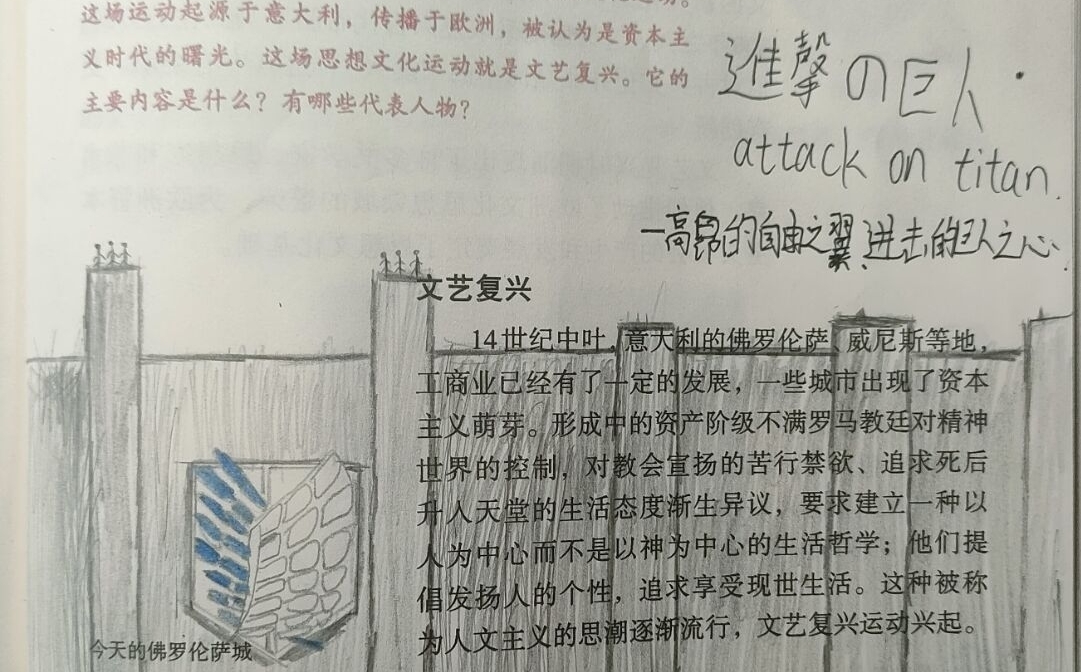 这场运动起源于意大利，传播于欧洲，被认为是资本主
义时代的曙光。这场思想文化运动就是文艺复兴。它的
主要内容是什么？有哪些代表人物？
進撃の巨人.
attack on titan.
一高昂的自由之翼、进击的巨人之心.
文艺复兴
14世纪中叶，意大利的佛罗伦萨、威尼斯等地，
工商业已经有了一定的发展，一些城市出现了资本
主义萌芽。形成中的资产阶级不满罗马教廷对精神
世界的控制，对教会宣扬的苦行禁欲、追求死后
升入天堂的生活态度渐生异议，要求建立一种以
人为中心而不是以神为中心的生活哲学；他们提
倡发扬人的个性，追求享受现世生活。这种被称
为人文主义的思潮逐渐流行，文艺复兴运动兴起。
今天的佛罗伦萨城